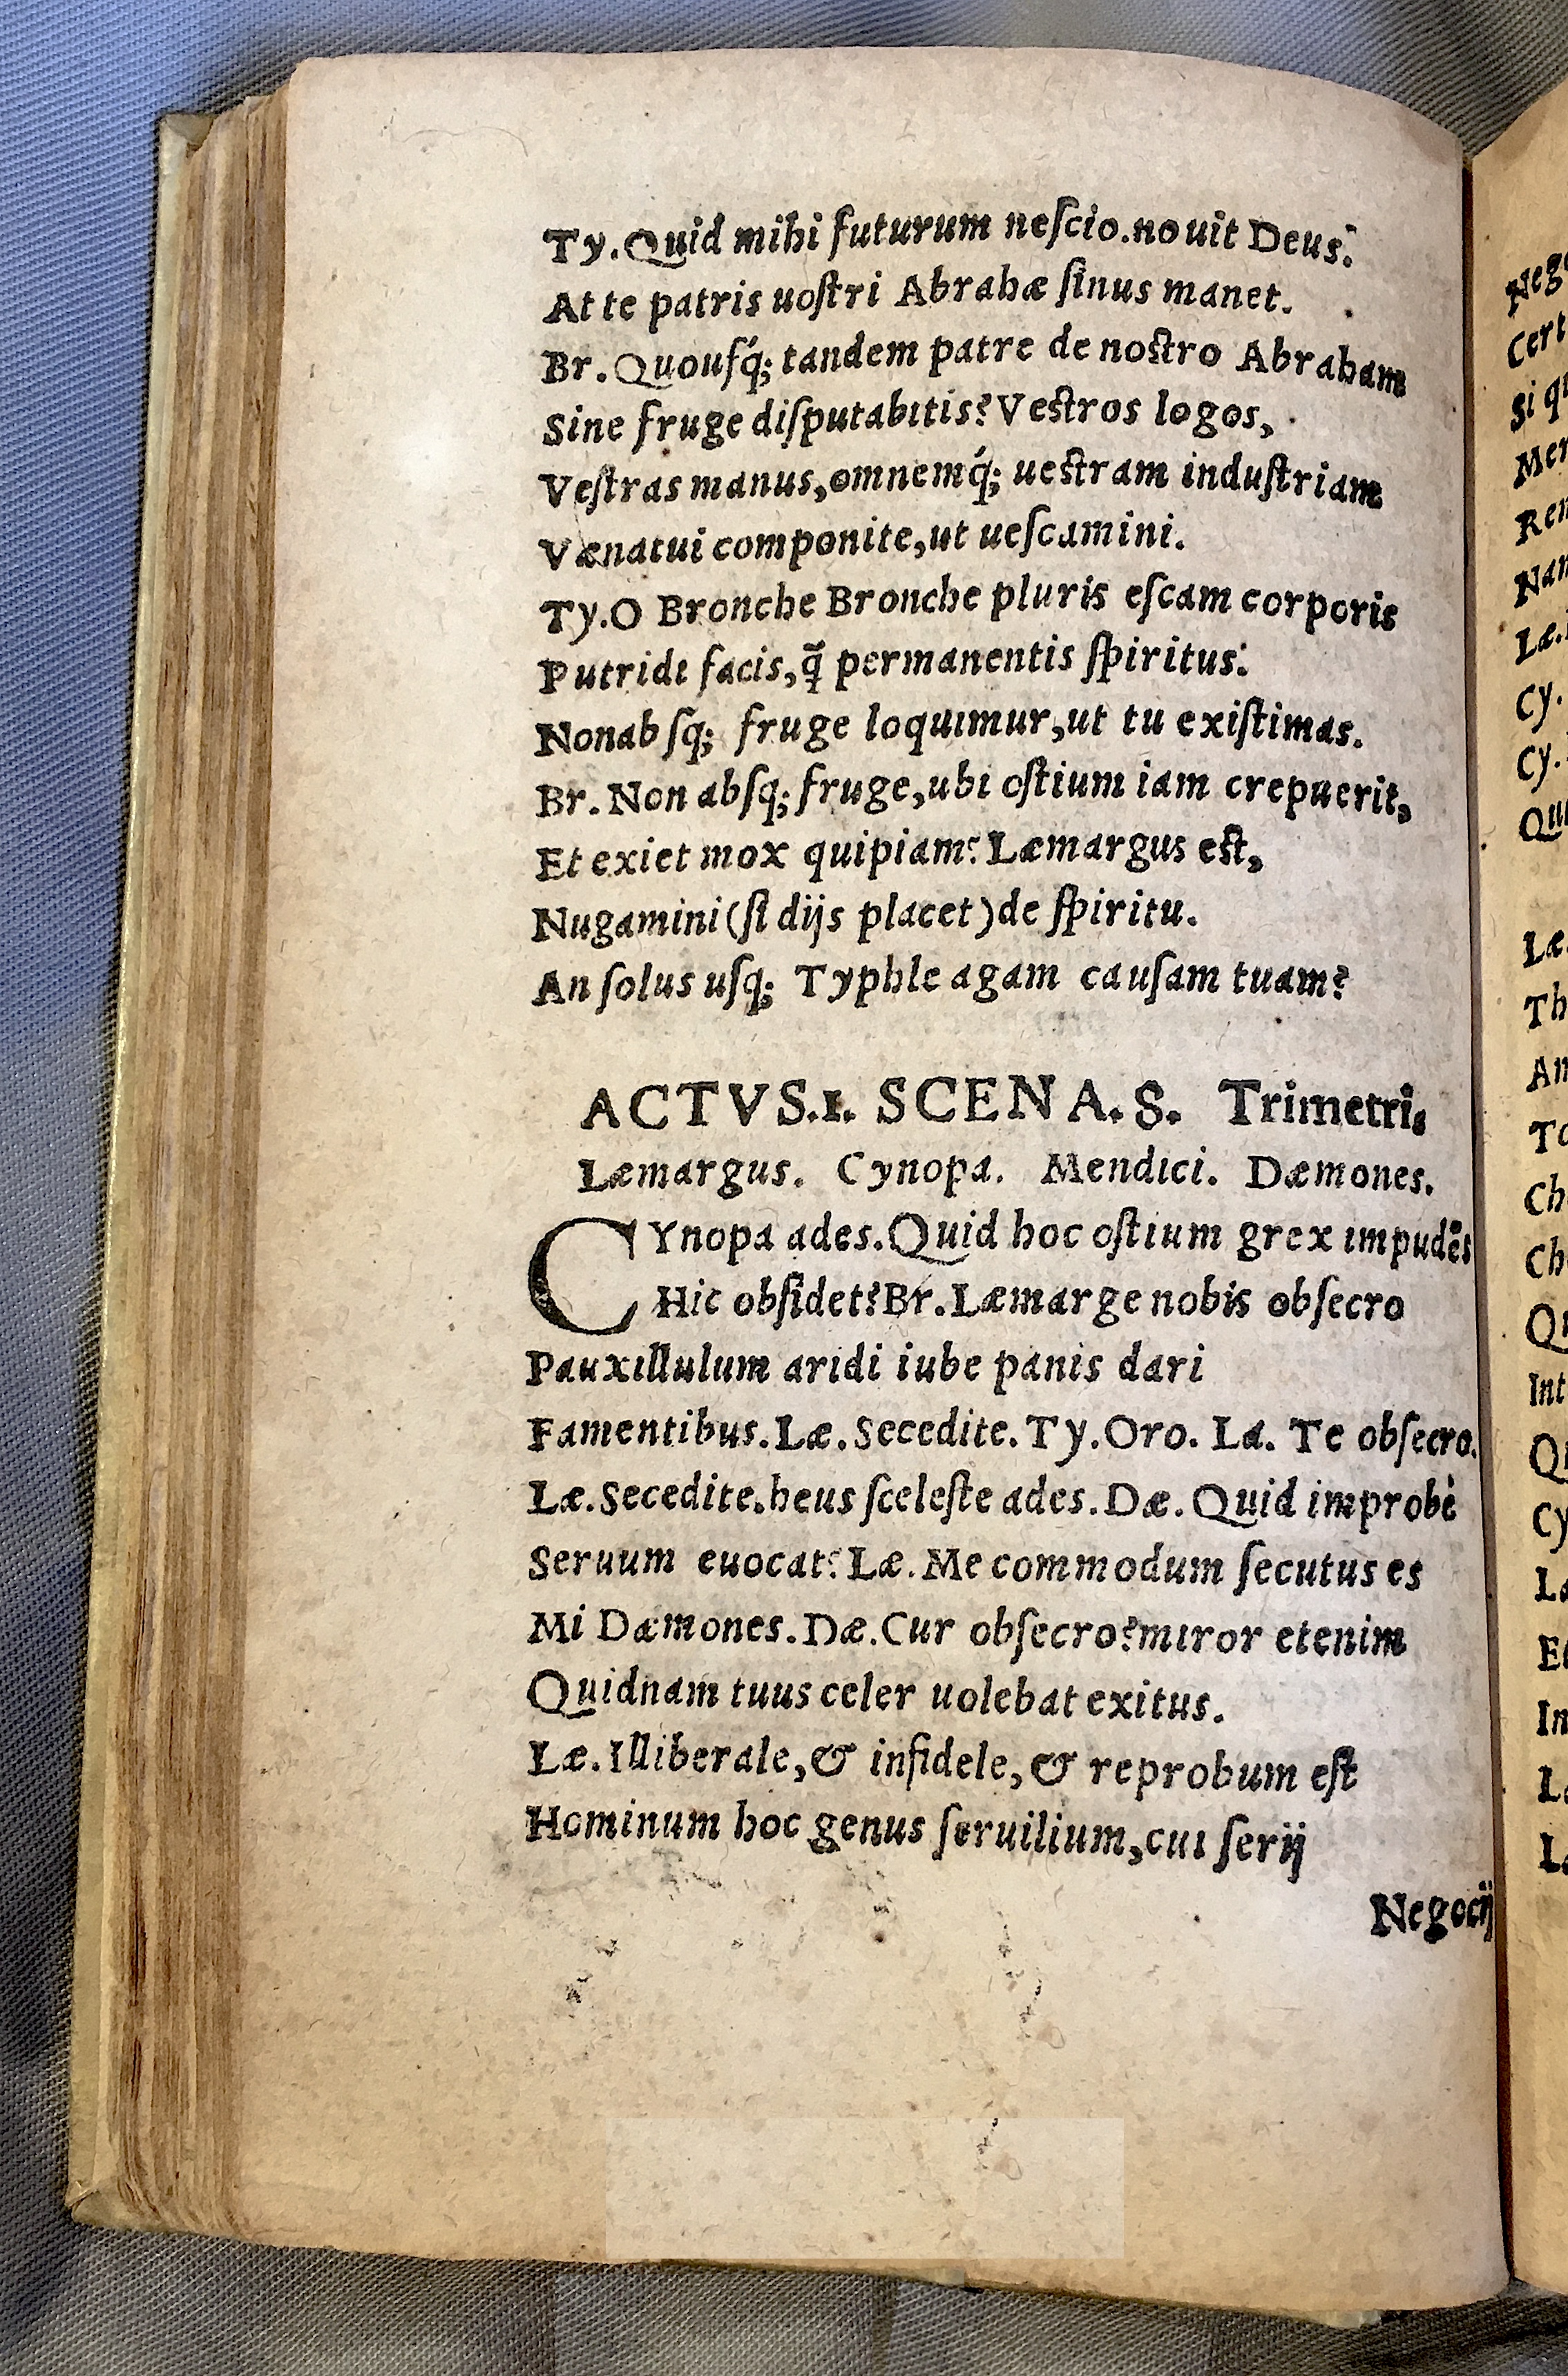 Ty. Quid mihi futurum neſcio. nouit Deus.
At te patris uoſtri Abrahæ ſinus manet.
Br. Quouſq́; tandem patre de noſtro Abraham
Sine fruge diſputabitis? Veſtros logos,
Veſtras manus, omnemq́; ueſtram induſtriam
Vænatui componite, ut ueſcamini.
Ty. O Bronche Bronche pluris eſcam corporis
Putridi facis, q̃ permanentis ſpiritus.
Non abſq; fruge loquimur, ut tu exiſtimas.
Br. Non abſq; fruge, ubi oſtium iam crepuerit,
Et exiet mox quipiam? Læmargus eſt,
Nugamini (ſi dijs placet) de ſpiritu.
An ſolus uſq; Typhle agam cauſam tuam?
ACTVS. I. SCENA. S. Trimetri.
Læmargus. Cynopa. Mendici. Dæmones.
CYnopa ades. Quid hoc oſtium grex impudẽs
Hic obſidet? Br. Læmarge nobis obſecro
Pauxillulum aridi iube panis dari
Famentibus. Læ. Secedite. Ty. Oro. La. Te obſecro.
Læ. Secedite. heus ſceleſte ades. Dæ. Quid improbè
Seruum euocat? Læ. Me commodum ſecutus es
Mi Dæmones. Dæ. Cur obſecro? miror etenim
Quidnam tuus celer uolebat exitus.
Læ. Illiberale, & infidele, & reprobum eſt
Hominum hoc genus ſeruilium, cui ſerij
Negocij
Cert
Si qu
Læ.
Cy.
Cy.
Th
Ch
Ch
Int